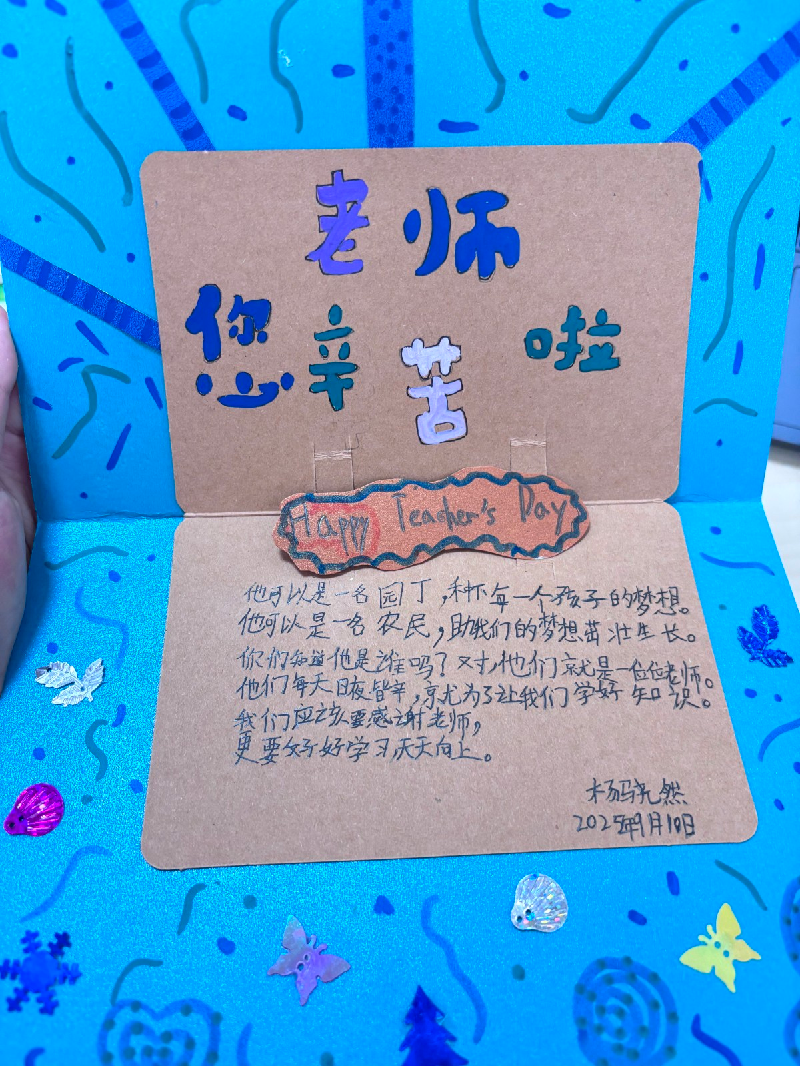 老师
您辛苦啦
Happy Teacher's Day
他可以是一名园丁,种下每一个孩子的梦想。
他可以是一名农民,助我们的梦想茁壮生长。
你们知道他是谁吗?对,他们就是一位位老师。
他们每天日夜皆辛,就为了让我们学好知识。
我们应该要感谢老师,
更要好好学习天天向上。
杨骁然
2025年9月10日